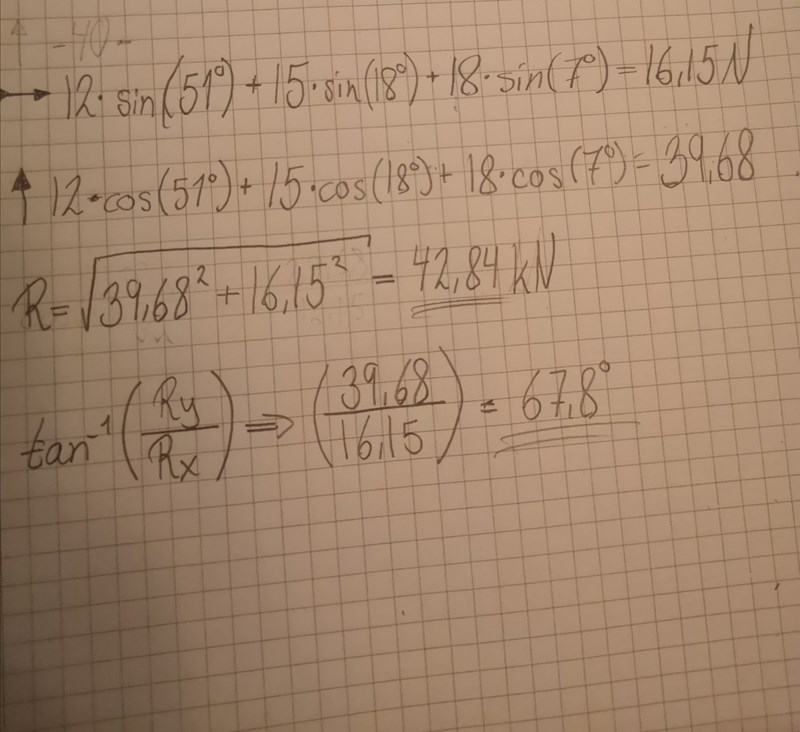 ↑ -40-
→ 12· sin(51°) + 15·sin(18°) + 18·sin(7°) = 16,15N
↑ 12·cos(51°) + 15·cos(18°) + 18·cos(7°) = 39,68
R = √39,68² + 16,15² = 42,84 kN
tan⁻¹(Ry/Rx) ⇒ (39,68/16,15) = 67,8°